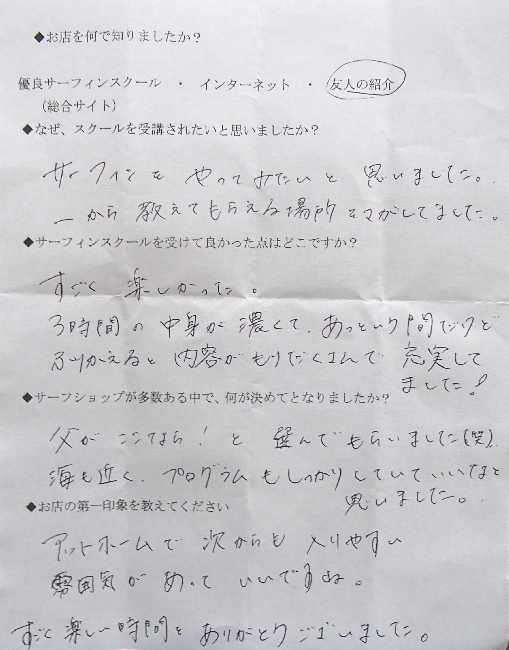 ◆お店を何で知りましたか？
優良サーフィンスクール ・ インターネット ・ 友人の紹介
（総合サイト）
◆なぜ、スクールを受講されたいと思いましたか？
サーフィンを やってみたいと 思いました。
一から 教えてもらえる場所 さがしてました。
◆サーフィンスクールを受けて良かった点はどこですか？
すごく 楽しかった。
3時間の 中身が 濃くて、あっという間だけど
ふりかえると 内容がもりだくさんで 充実して
ました！
◆サーフショップが多数ある中で、何が決めてとなりましたか？
父が ここなら！と 選んでもらいました(笑)
海も近く、プログラムもしっかりしていていいなと
思いました。
◆お店の第一印象を教えてください
アットホームで 次からも 入りやすい
雰囲気が あって いいですね。
すごく 楽しい時間を ありがとうございました。